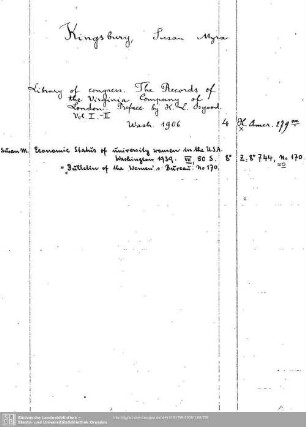 Kingsbury, Susan Myra
Library of congress. The Records of
the Virginia Company of
London. Preface by H. L. Osgood.
Vol I.-II
Wash. 1906 4. H. Amer. 279
Susan M. Economic Status of university women in the U.S.A.
Washington 1939. VII, 50 S. 8° Z. 8° 744, No 170.
= Bulletin of the Women's Bureau. No 170.
Sächsische Landesbibliothek -
Staats- und Universitätsbibliothek Dresden